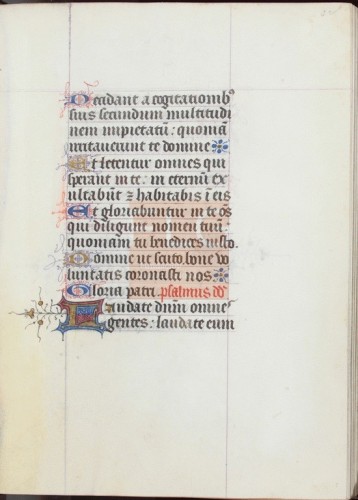 Decidant a cogitationib⁹
suis secundum multitudi
nem impietatū: quoniā
irritaverunt te domine
Et letentur omnes qui
sperant in te: in eternū ex
ultabūt ⁊ habitabis ī eis
Et gloriabuntur in te oēs
qui diligunt nomen tuū:
quoniam tu benedices iusto.
Domine ut scuto bone vo
luntatis coronasti nos
Gloria patri. psalmus dd
Laudate dnm omnes
gentes: laudate eum